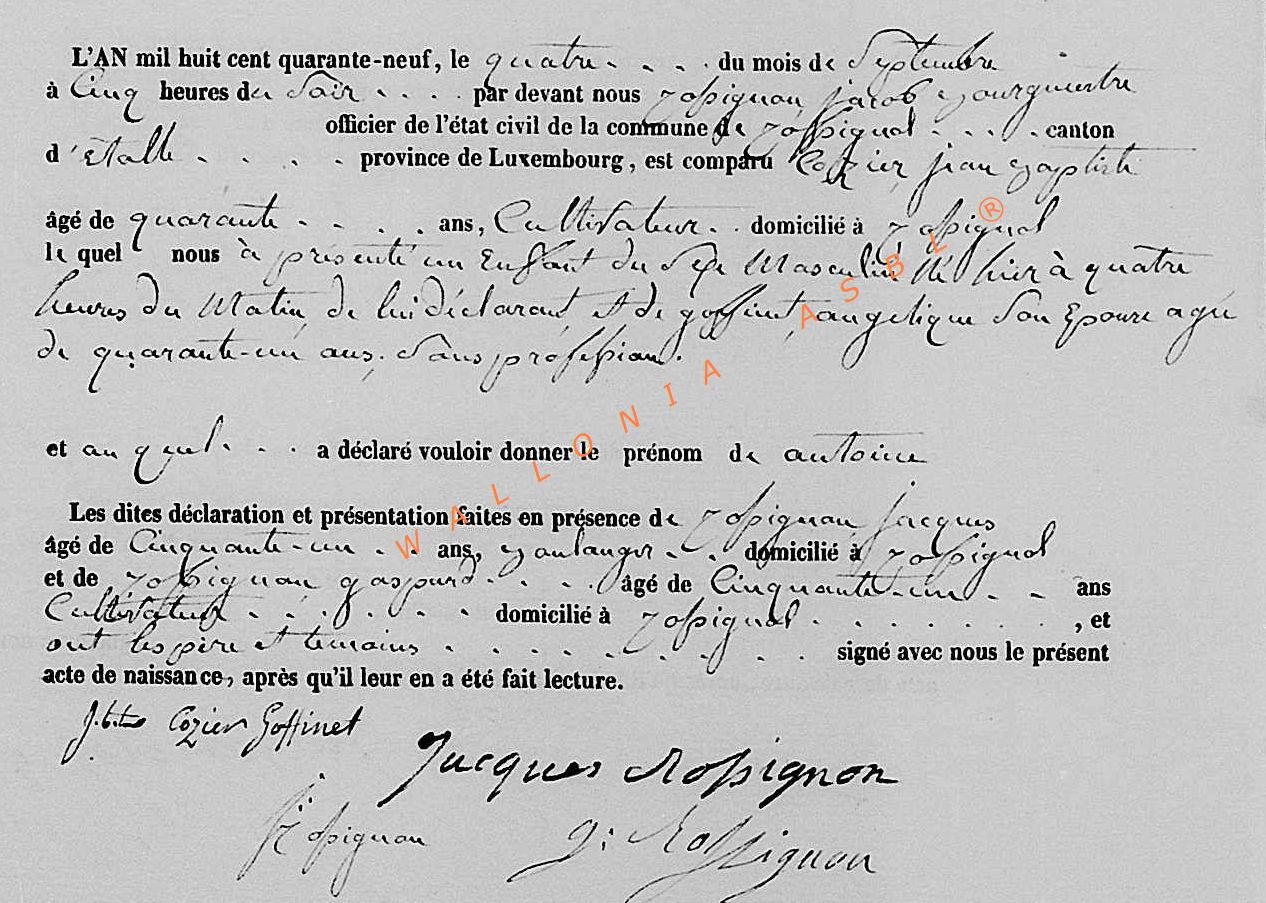 L'AN mil huit cent quarante-neuf, le quatre . . . . du mois de Septembre
à Cinq heures du Soir . . . . par devant nous rossignon jacob bourguemestre
officier de l'état civil de la commune de rossignol . . . . canton
d'étalle . . . . province de Luxembourg, est comparu Cozier jean baptiste
âgé de quarante . . . . ans, Cultivateur . . domicilié à rossignol
le quel nous à présenté un Enfant du Sexe Masculin Né hier à quatre
heures du Matin, de lui déclarant et de goffinet angelique Son Epouse agée
de quarante-un ans, Sans profession.
et au quel . . . a déclaré vouloir donner le prénom de antoine
Les dites déclaration et présentation faites en présence de rossignon jacques
âgé de Cinquante-un . . ans, boulanger . . domicilié à rossignol
et de rossignon gaspard . . . . âgé de Cinquante-un . . ans
Cultivateur . . . . . . . domicilié à rossignol . . . . . . . , et
ont les père et temoins . . . . . . . . signé avec nous le présent
acte de naissance, après qu'il leur en a été fait lecture.
J.bte Cozier Goffinet
Jacques Rossignon
J Rossignon
g: Rossignon
WALLONIA ASBL ®